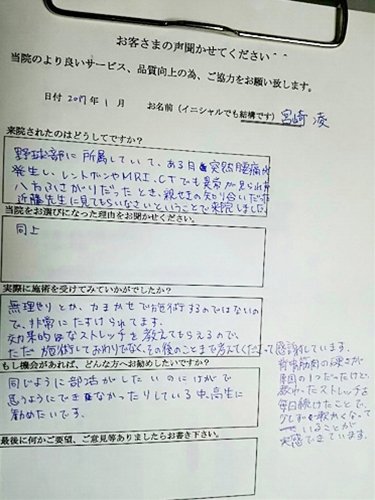 お客さまの声聞かせてください^^
当院のより良いサービス、品質向上の為、ご協力をお願い致します。
日付 2017年 1月 お名前(イニシャルでも結構です) 宮崎 凌
来院されたのはどうしてですか?
野球部に所属していて、ある日突発腰痛が
発生し、レントゲンやMRI、CTでも異常が見られず
八方ふさがりだったとき、親せきの知り合いだった
近藤先生に見てもらいなさいということで来院しました。
当院をお選びになった理由をお聞かせください。
同上
実際に施術を受けてみていかがでしたか?
無理やりとか、力まかせで施術するのではないの
で、非常にたすけられてます。
効果的なストレッチを教えてもらえるので、
ただ施術しておわりでなく、その後のことまで考えてくださって感謝しています。
もし機会があれば、どんな方へお勧めしたいですか?
同じように部活がしたいのにけがで
思うようにできなかったりしている中、高生に
勧めたいです。
背骨筋肉の硬さが
原因の1つだったけど、
教わったストレッチを
毎日続けたことで、
少しずつ軟わくなって
いることが
実感できています。
最後に何かご要望、ご意見等ありましたらお書き下さい。